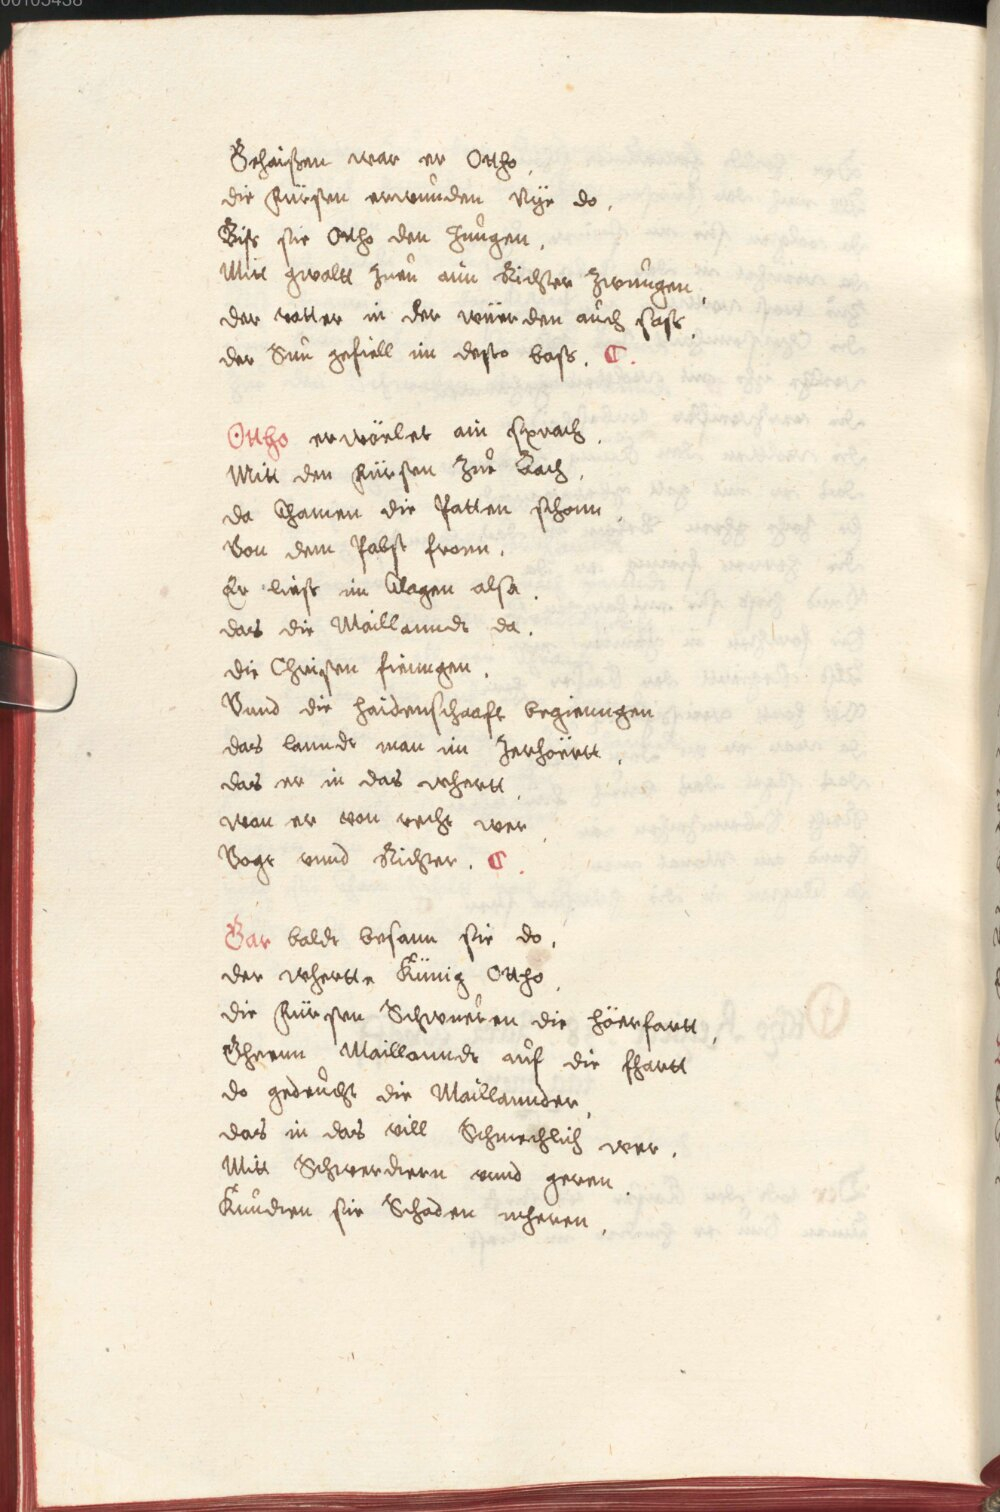 00105438
Gehaißen war er Ottho,
die Fürsten erwunden Nÿe do,
Biß sie Ottho den Jungen,
Mitt gwaltt Zueu ain Richter Zwungen,
der vatter in der wüerden auch saß,
der Sun gefiell im desto baß. C.
Ottho erwörbet ain sprach,
Mitt den Fürsten Zue Bach,
da Chamen die Patten schonn
Von dem Pabst fronn.
Er ließ im Clagen alsa.
das die Maillanndt da.
die Christen fienngen.
Vnnd die haidenschaafft begienngen
das lanndt man im Zerhöertt,
das er in das whertt,
wan er von recht wer,
Vogt vnnd Richter. C.
Gar baldt besann sie do,
der whertte Künig Ottho,
die Fürsten Schwueren die höerfartt,
Ghenn Maillanndt auf die fhartt
do gedeucht die Maillannder,
das in das vill Schmechlich wer.
Mitt Schwerdtern vnnd geren,
Kundten sie Schaden mheren,